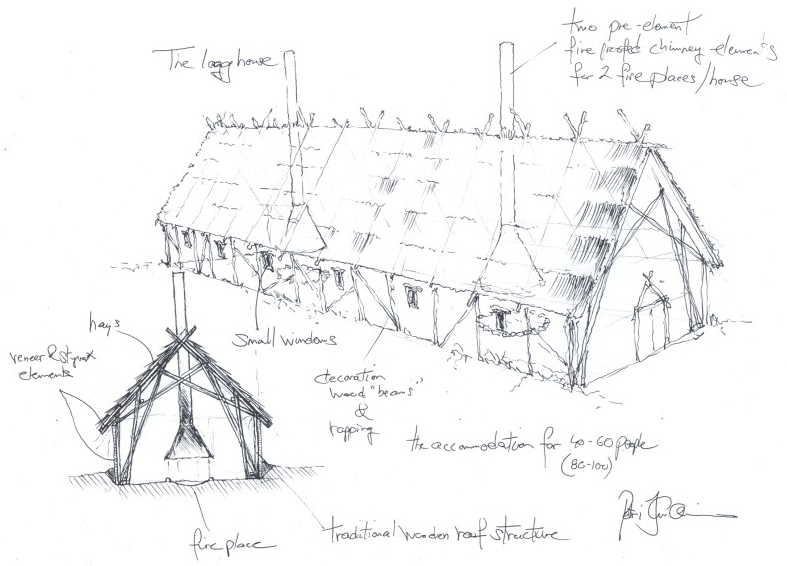 The logghouse
two pre-element
fire proofed chimney elements
for 2 fire places/house
hays
veneer & styrox
elements
Small windows
decoration
wood "beams"
&
rapping
the accommodation for 40-60 people
(80-100)
fire place
traditional wooden roof structure